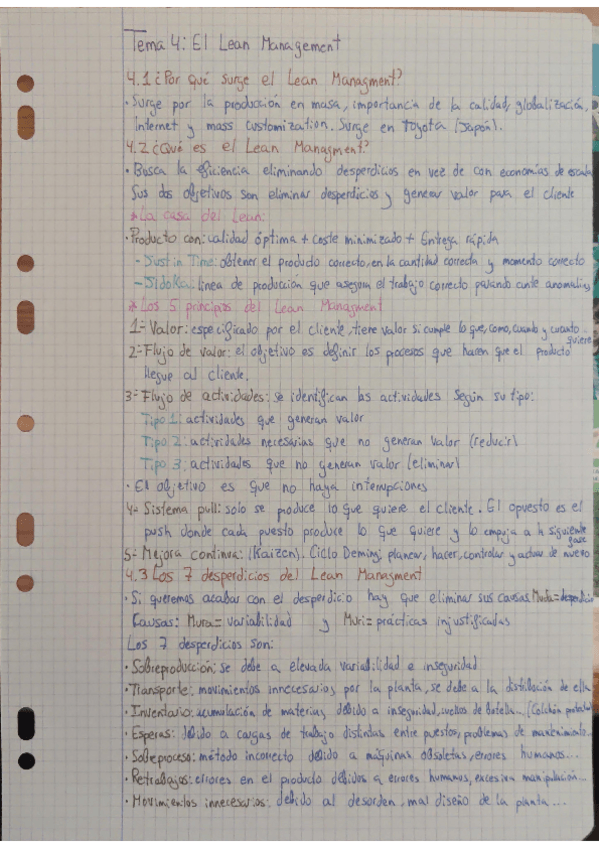 Tema 4: El Lean Management
4.1 ¿Por qué surge el Lean Managment?
· Surge por la producción en masa, importancia de la calidad, globalización,
Internet y mass customization. Surge en Toyota (Japón).
4.2 ¿Qué es el Lean Managment?
· Busca la eficiencia eliminando desperdicios en vez de con economías de escala
Sus dos objetivos son eliminar desperdicios y generar valor para el cliente
* La casa del Lean:
· Producto con: calidad óptima + coste minimizado + Entrega rápida
- Just in Time: obtener el producto correcto, en la cantidad correcta y momento correcto
- Jidoka: línea de producción que asegura el trabajo correcto parando ante anomalías
* Los 5 principios del Lean Managment
1- Valor: especificado por el cliente, tiene valor si cumple lo que, como, cuando y cuanto quiere
2- Flujo de valor: el objetivo es definir los procesos que hacen que el producto
llegue al cliente.
3- Flujo de actividades: se identifican las actividades según su tipo:
Tipo 1: actividades que generan valor
Tipo 2: actividades necesarias que no generan valor (reducir)
Tipo 3: actividades que no generan valor (eliminar)
· El objetivo es que no haya interrupciones
4- Sistema pull: solo se produce lo que quiere el cliente. El opuesto es el
push donde cada puesto produce lo que quiere y lo empuja a la siguiente fase
5- Mejora continua: (Kaizen). Ciclo Deming: planear, hacer, controlar y actuar de nuevo
4.3 Los 7 desperdicios del Lean Managment
· Si queremos acabar con el desperdicio hay que eliminar sus causas Muda= desperdicio
Causas: Mura= variabilidad y Muri= prácticas injustificadas
Los 7 desperdicios son:
· Sobreproducción: se debe a elevada variabilidad e inseguridad
· Transporte: movimientos innecesarios por la planta, se debe a la distribución de ella
· Inventario: acumulación de materias debido a inseguridad, cuellos de botella... (Colchón
· Esperas: debido a cargas de trabajo distintas entre puestos, problemas de mantenimiento...
· Sobreproceso: método incorrecto debido a máquinas obsoletas, errores humanos...
· Retrabajos: errores en el producto debidos a errores humanos, excesiva manipulación...
· Movimientos innecesarios: debido al desorden, mal diseño de la planta...